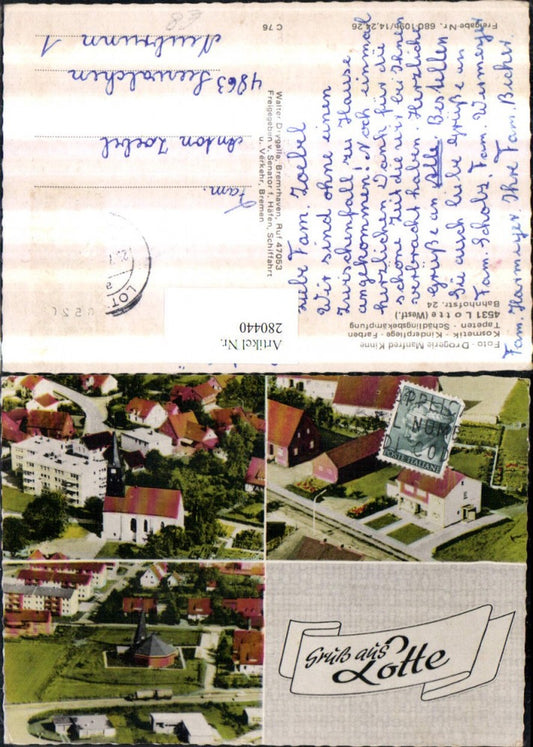 Foto - Drogerie Manfred Kinne
Kosmetik - Kinderpflege - Farben
Tapeten - Schädlingsbekämpfung
4531 Lotte (Westf.)
Bahnhofstr. 24
Liebe Fam. Zoebel
Wir sind ohne einen
Zwischenfall zu Hause
angekommen! Noch einmal
herzlichen Dank für die
schöne Zeit die wir bei Ihnen
verbracht haben. Herzliche
Grüße an alle. Bestellen
Sie auch liebe Grüße an
Fam. Scholz, Fam.
Fam. Ihre Fam.
Walter Drygalla, Bremerhaven, Ruf 47053
Freigegeben v. Senator f. Häfen, Schiffahrt
u. Verkehr, Bremen
Freigabe Nr. 680-1099/14,24,26
C 76
LOT
Fam.
Anton Zoebel
4863 Seewalchen
Neubrunn
1
Artikel Nr.
280440
POSTE ITALIANE
Gruß aus
Lotte